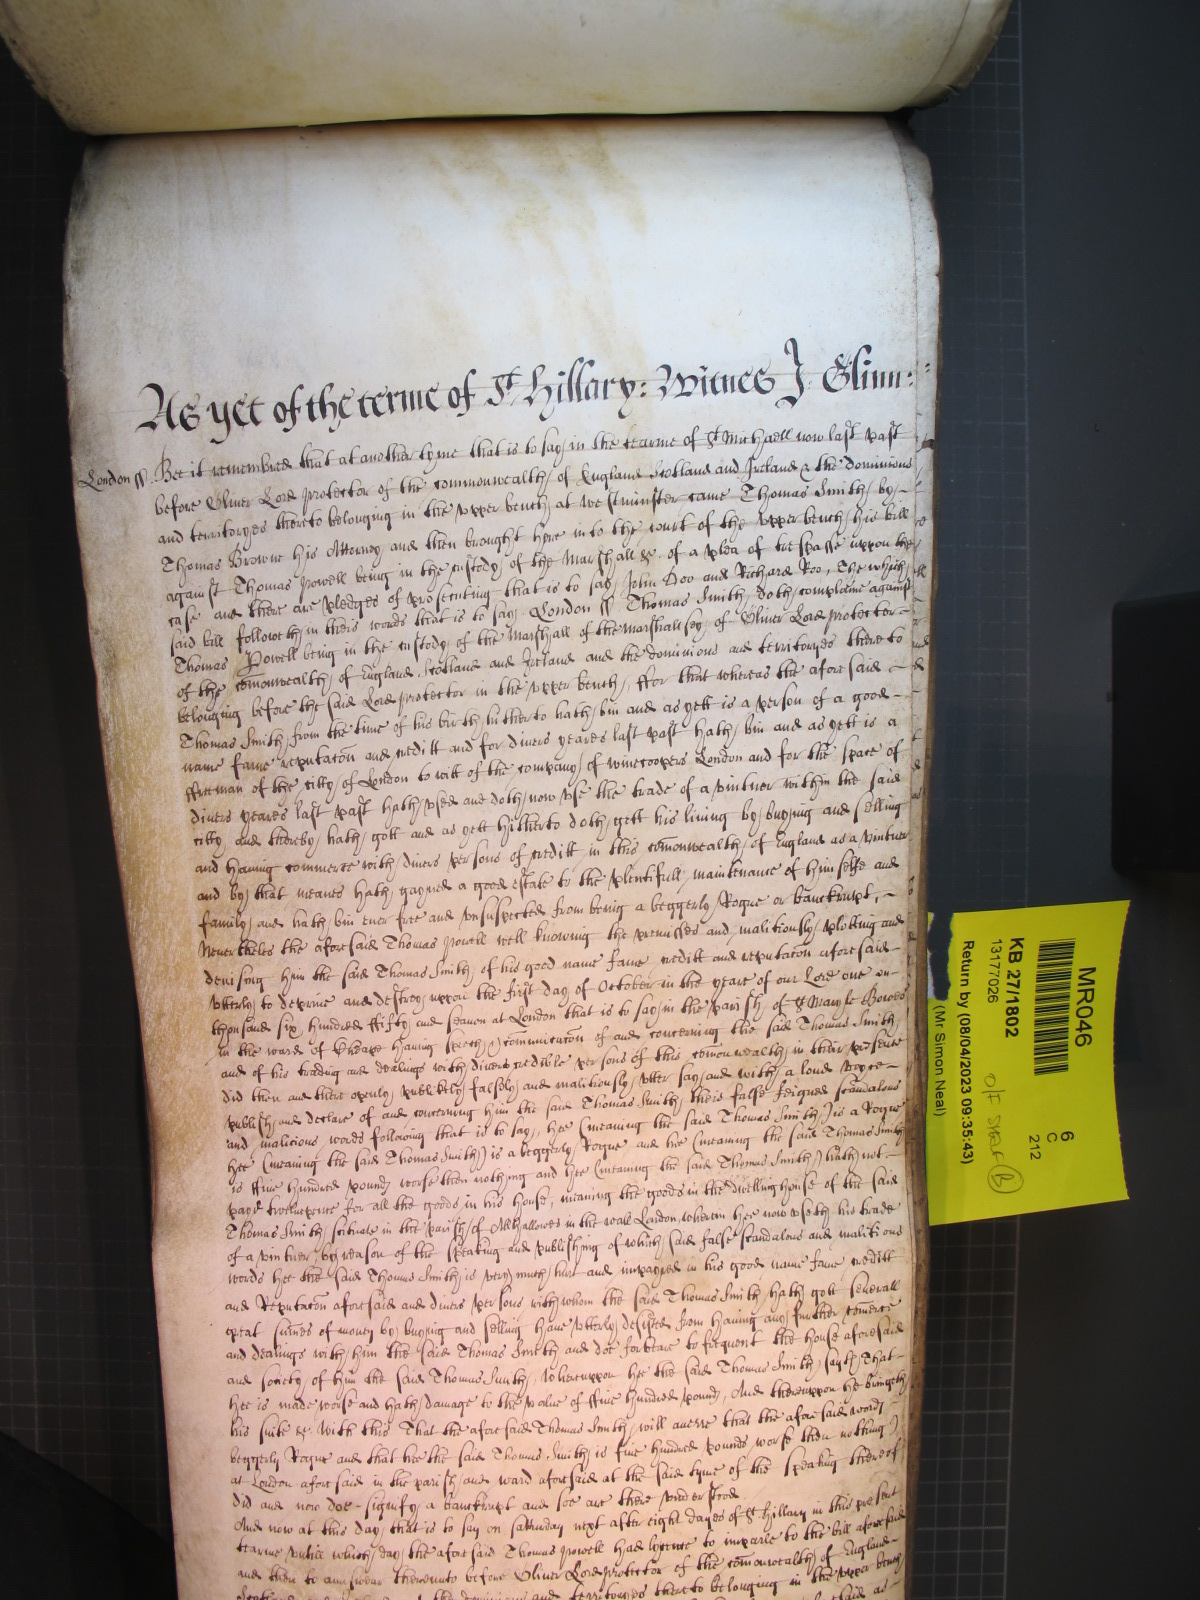 As yet of the terme of St Hillary: Witnes J Glinn:
London ss. Bee it remembred that at another tyme that is to say in the tearme of St Michaell now last past
before Oliver Lord protector of the commonwealth of England Scotland and Ireland & the dominions
and territoryes thereto belonging in the vpper bench at westminster came Thomas Smith by
Thomas Browne his Attorney and then brought here in to the court of the vpper bench his bill
against Thomas Powell being in the custody of the Marshall &c. of a plea of trespasse vppon the
case and there are pledges of prosecuting that is to say John Doo and Richard Roo, The which
said bill followeth in theis words that is to say London ss Thomas Smith doth complaine against
Thomas Powell being in the custody of the Marshall of the Marshallsey of Oliver Lord protector
of the comonwealth of England Scotland and Ireland and the dominions and territoryes there to
belonging before the said Lord protector in the vpper bench, ffor that whereas the afore said
Thomas Smith from the time of his birth hitherto hath bin and as yett is a person of a good
name fame reputacon and creditt and for divers yeares last past hath bin and as yett is a
ffreeman of the citty of London to witt of the company of winecoopers London and for the space of
divers yeares last past hath vsed and doth now vse the trade of a vintner within the said
citty and thereby hath gott and as yett hitherto doth gett his living by buying and selling
and having commerce with divers persons of creditt in this comonwealth of England as a vintner
and by that meanes hath gayned a good estate to the plentifull maintenance of himselfe and
family and hath bin ever free and vnsuspected from being a beggerly Rogue or banckrupt,
Nevertheles the aforesaid Thomas Powell well knowing the premisses and malitiously plotting and
devising him the said Thomas Smith of his good name fame creditt and reputacon aforesaid
vtterly to deprive and destroy vppon the first day of October in the yeare of our Lord one
thousand six hundred fifty and seaven at London that is to say in the parish of St Mary le Bowes
in the ward of Cheape having speech & communicaton of and concerning the said Thomas Smith
and of his trading and dealings with divers credible persons of this comonwealth in their presence
did then and there openly publikely falsely and malitiously vtter say and with a loud voyce
publish and declare of and concerning him the said Thomas Smith theis false feigned scandalous
and malicious words following that is to say, hee (meaning the said Thomas Smith) is a Rogue
hee (meaning the said Thomas Smith) is a beggerly Rogue and hee (meaning the said Thomas Smith
is ffive hundred pounds worse then nothing and hee (meaning the said Thomas Smith) hath not
payd for all the goods in his house, meaning the goods in the dwelling house of the said
Thomas Smith scituate in the parish of Allhallowes in the wall London, wherein hee now vseth his trade
of a vintner by reason of the speaking and publishing of which said false scandalous and malitious
words hee the said Thomas Smith is very much hurt and impayred in his good name fame creditt
and Reputacon aforesaid and divers persons with whom the said Thomas Smith hath gott severall
great sumes of money by buying and selling have vtterly desisted from having any further comerce
and dealings with him the said Thomas Smith and doe forbeare to frequent the house aforesaid
and society of him the said Thomas Smith, Wherevppon hee the said Thomas Smith sayth That
hee is made worse and hath damage to the value of ffive hundred pounds, And therevppon he bringeth
his suite &c. With this That the aforesaid Thomas Smith will averre that the aforesaid words
beggerly Rogue and that hee the said Thomas Smith is five hundred pounds worse then nothing
at London aforesaid in the parish and ward aforesaid at the said tyme of the speaking thereof
did and now doe signify a banckrupt and soe are there vnderstood.
And now at this day that is to say on saturday next after eight dayes of St Hillary in this present
tearme vntill which day the aforesaid Thomas Powell had lycence to imparle to the bill aforesaid
and then to answeare therevnto before Oliver Lord protector of the comonwealth of England
Scotland and Ireland and the dominions and territoryes thereto belonging in the vpper bench
MR046
KB 27/1802
13177026
Return by (08/04/2023 09:35:43)
(Mr Simon Neal)
6
C
212
O/F SHELF B